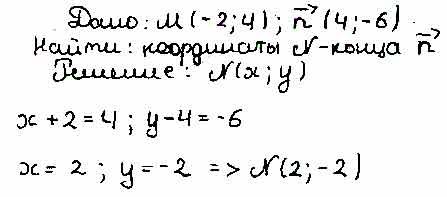 Дано: М(-2;4); n⃗ (4;-6)
Найти: координаты N-конца n⃗
Решение: N(x;y)
x+2=4; y-4=-6
x=2; y=-2 => N(2;-2)